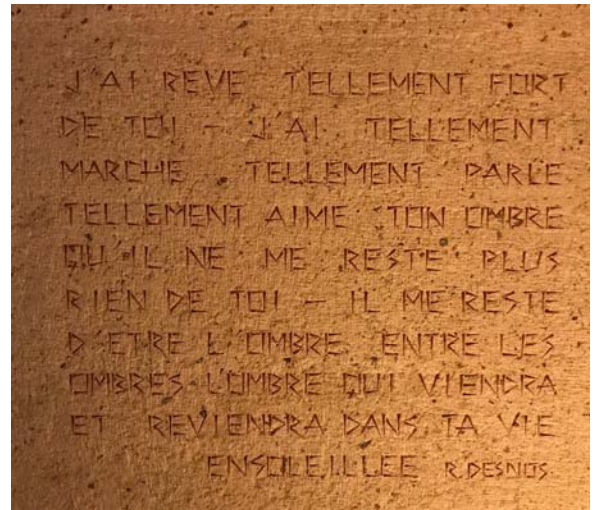 J'AI REVE TELLEMENT FORT
DE TOI – J'AI TELLEMENT
MARCHE TELLEMENT PARLE
TELLEMENT AIME TON OMBRE
QU'IL NE ME RESTE PLUS
RIEN DE TOI – IL ME RESTE
D'ETRE L'OMBRE ENTRE LES
OMBRES L'OMBRE QUI VIENDRA
ET REVIENDRA DANS TA VIE
ENSOLEILLEE R. DESNOS.